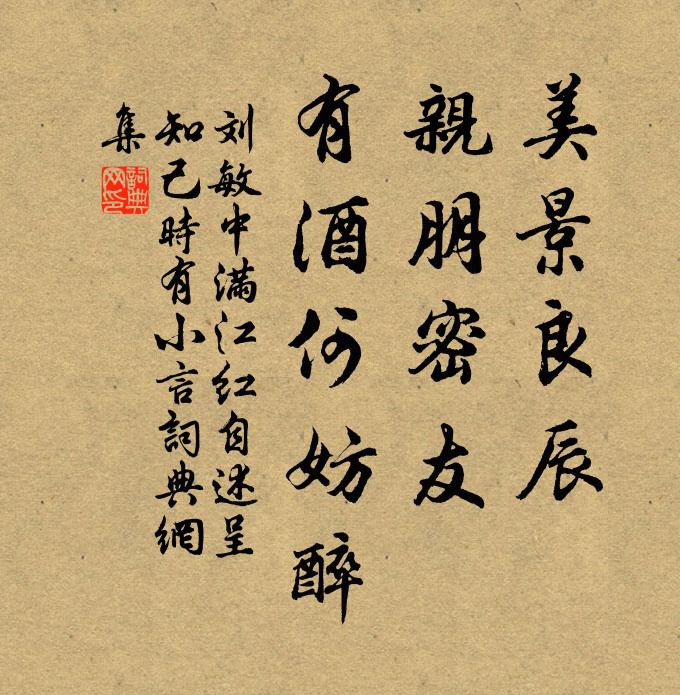 美景良辰
親朋密友
有酒何妨醉
刘敏中满江红自述呈
知己時有小言詞典網
集
詞典
网印